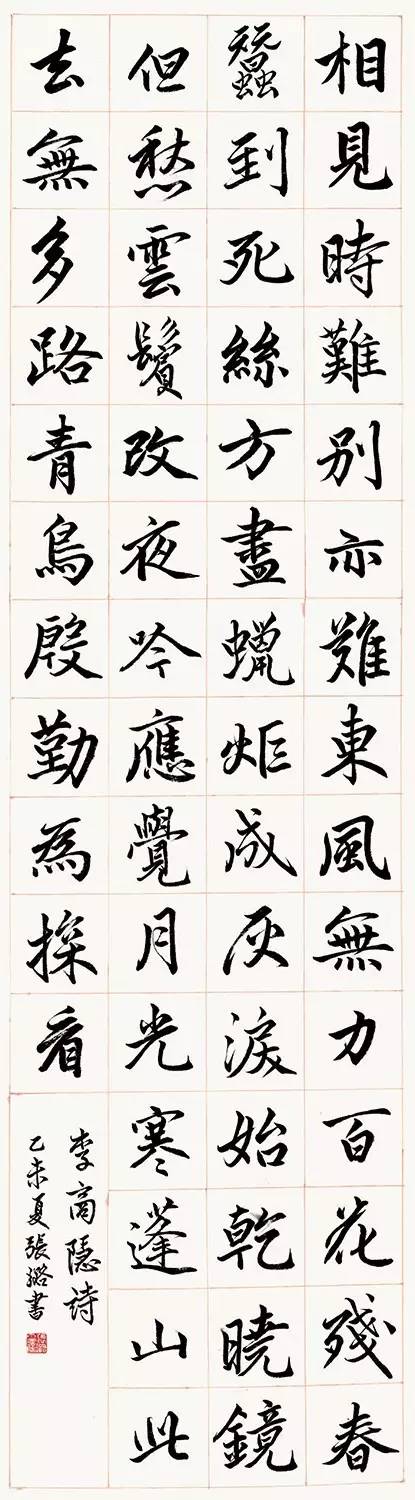 相見時難別亦難東風無力百花殘春
蠶到死絲方盡蠟炬成灰淚始乾曉鏡
但愁雲鬢改夜吟應覺月光寒蓬山此
去無多路青鳥殷勤為探看
李商隱詩
乙未夏張潞書